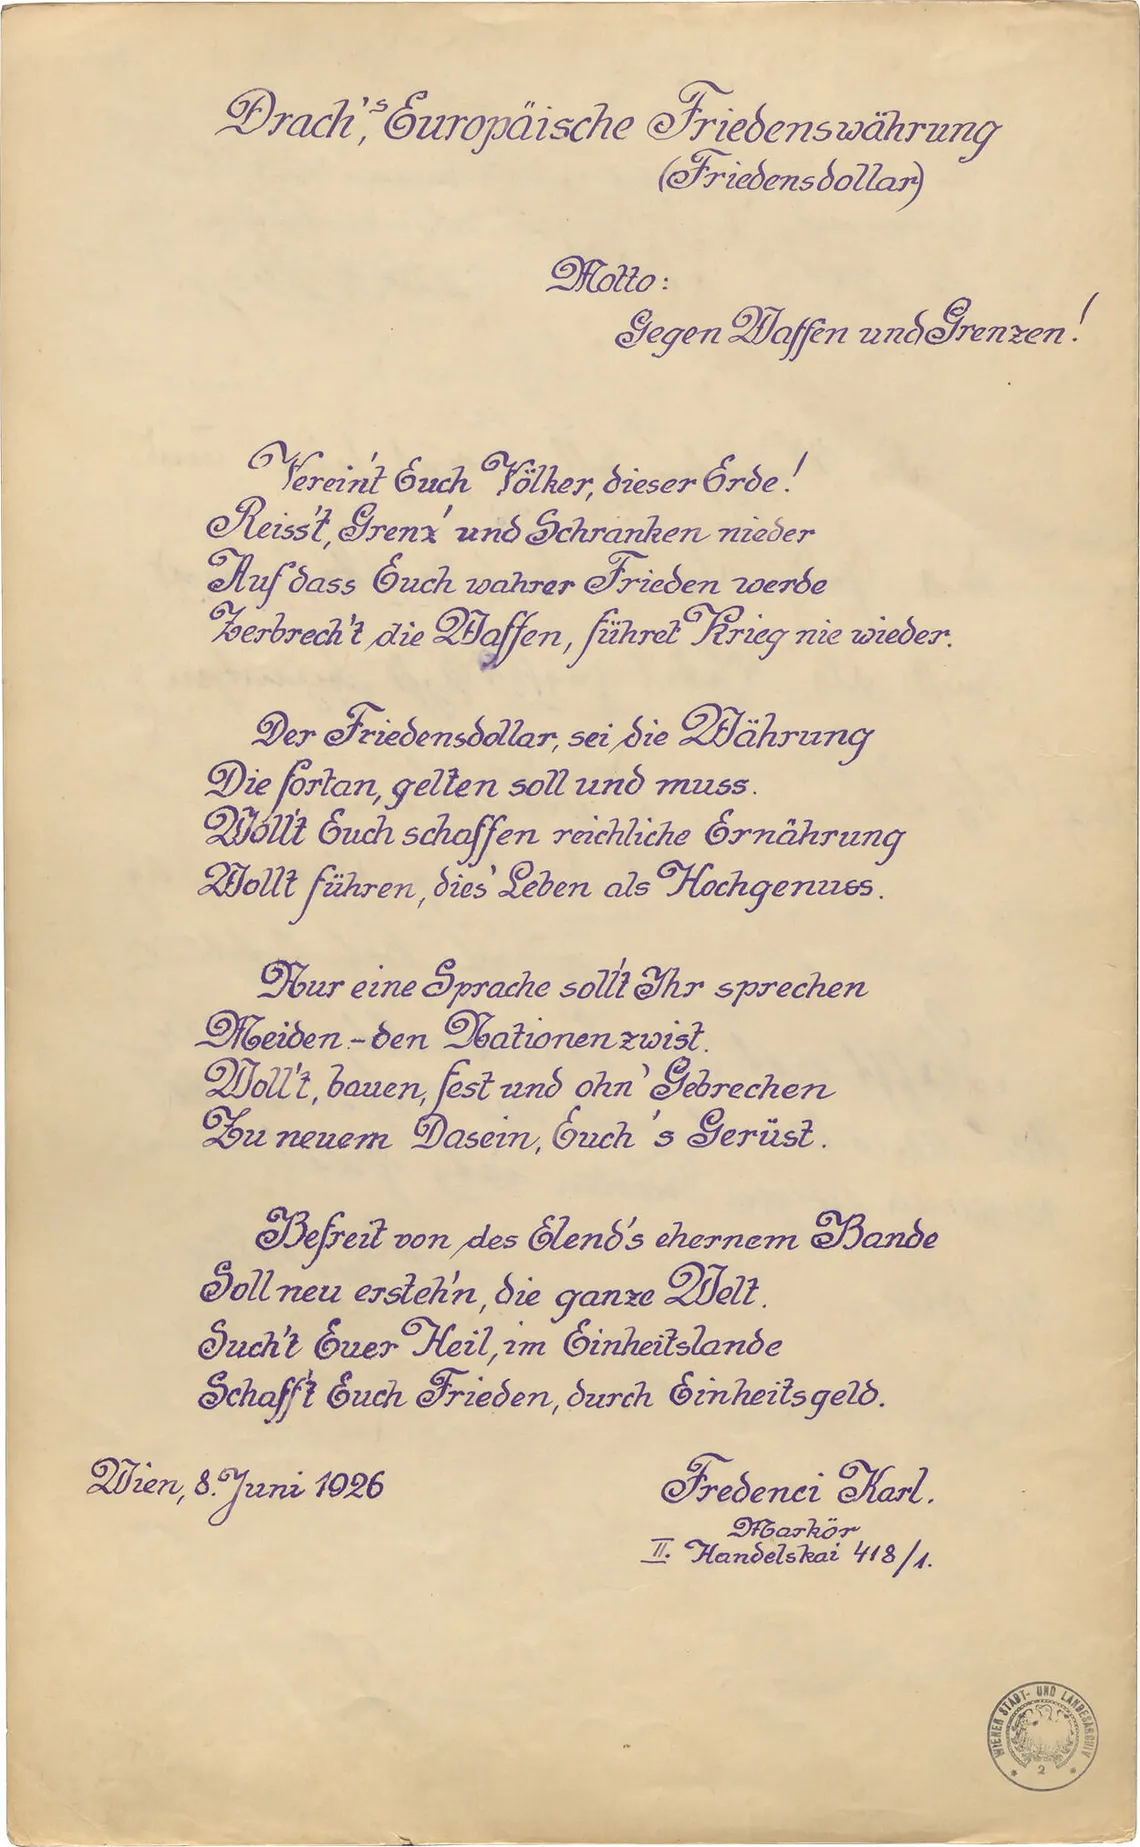 Drach's, Europäische Friedenswährung
(Friedensdollar)
Motto:
Gegen Waffen und Grenzen!
Verein't Euch Völker, dieser Erde!
Reiss't, Grenz' und Schranken nieder
Auf dass Euch wahrer Frieden werde
Zerbrech't die Waffen, führet Krieg nie wieder.
Der Friedensdollar, sei die Währung
Die fortan, gelten soll und muss.
Woll't Euch schaffen reichliche Ernährung
Wollt führen, dies' Leben als Hochgenuss.
Nur eine Sprache soll't Ihr sprechen
Meiden - den Nationenzwist.
Woll't, bauen, fest und ohn' Gebrechen
Zu neuem Dasein, Euch 's Gerüst.
Befreit von des Elend's ehernem Bande
Soll neu ersteh'n, die ganze Welt.
Such't Euer Heil, im Einheitslande
Schaff't Euch Frieden, durch Einheitsgeld.
Wien, 8. Juni 1926
Fredenci Karl.
Markör
II. Handelskai 418/1.
WIENER STADT- UND LANDESARCHIV
* 2 *